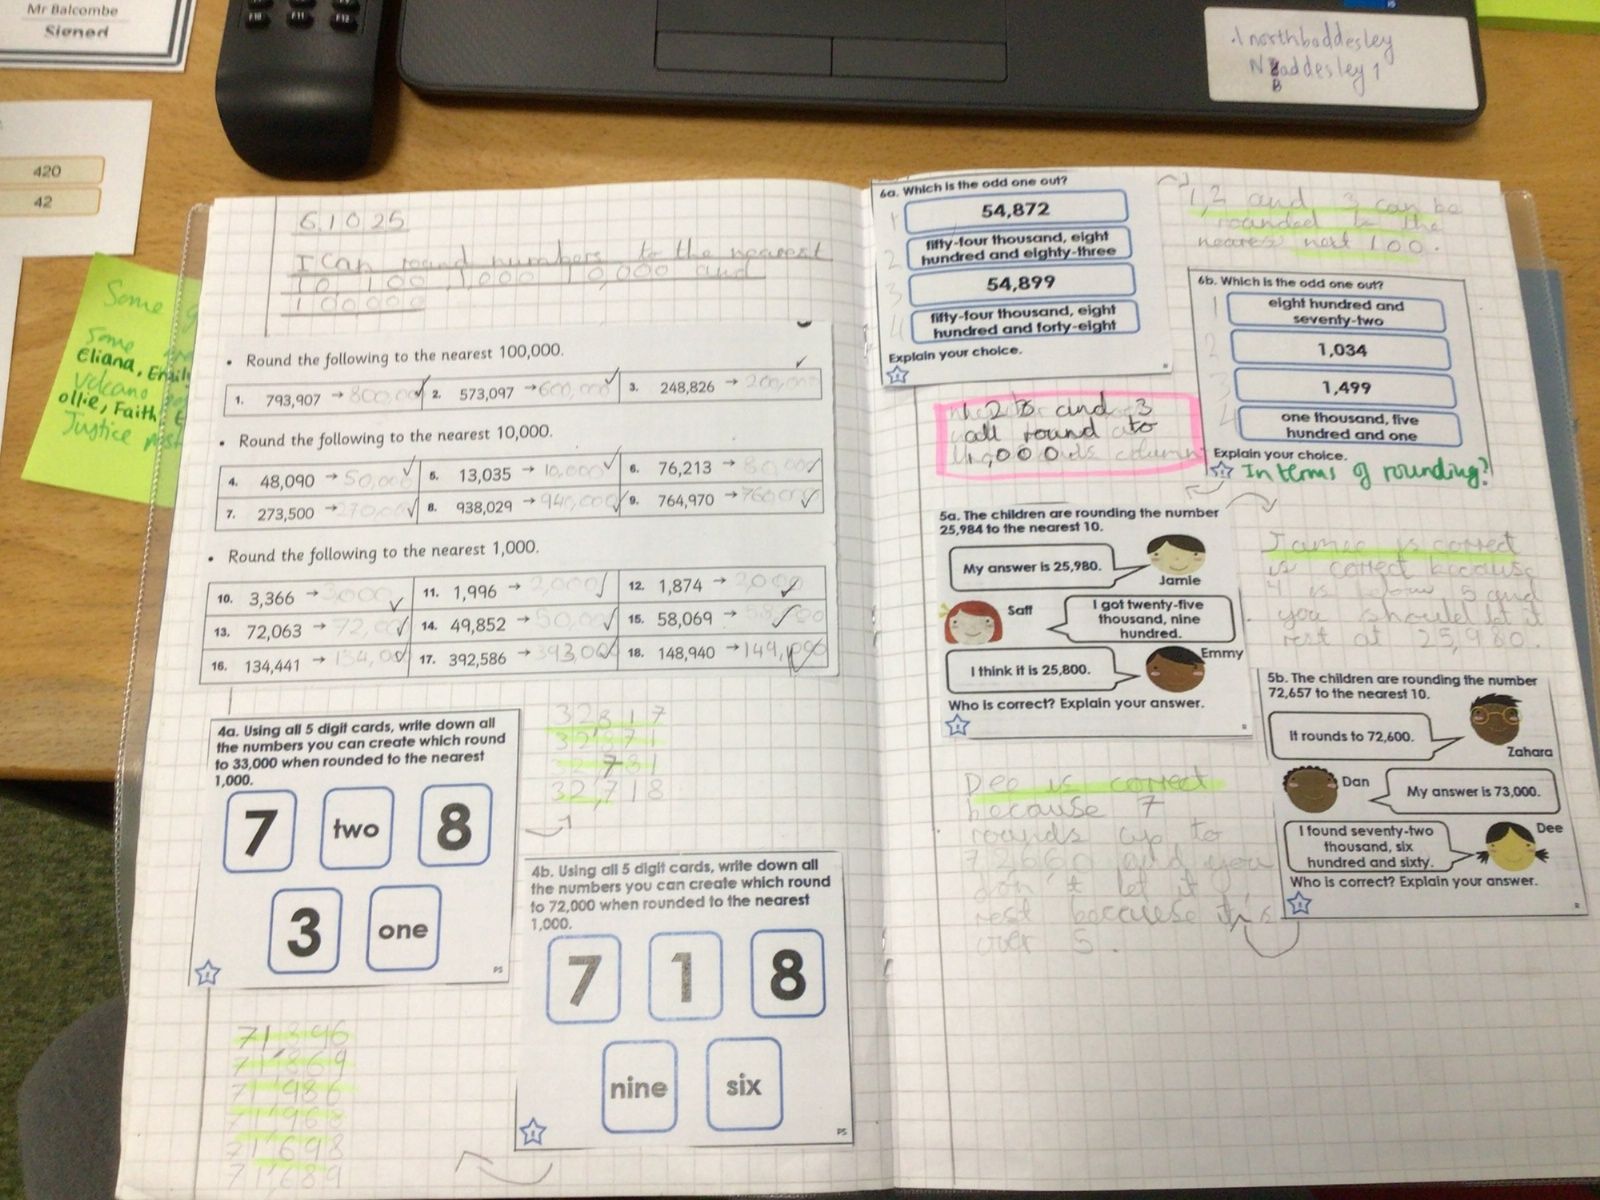 Mr Balcombe
Signed
F10 F11 F12
i5
.\northbaddesley
NBaddesley1
B
420
42
Some
Some
Eliana, Emily
Volcano
Ollie, Faith E
Justice
6.10.25
I can round numbers to the nearest
10, 100, 1,000 10,000 and
100000
• Round the following to the nearest 100,000.
1. 793,907 → 800,000 2. 573,097 → 600,000 3. 248,826 → 200,000
• Round the following to the nearest 10,000.
4. 48,090 → 50,000 5. 13,035 → 10,000 6. 76,213 → 80,000
7. 273,500 → 270,000 8. 938,029 → 940,000 9. 764,970 → 760,000
• Round the following to the nearest 1,000.
10. 3,366 → 3000 11. 1,996 → 2,000 12. 1,874 → 2,000
13. 72,063 → 72,000 14. 49,852 → 50,000 15. 58,069 → 58,000
16. 134,441 → 134,000 17. 392,586 → 393,000 18. 148,940 → 149,000
4a. Using all 5 digit cards, write down all
the numbers you can create which round
to 33,000 when rounded to the nearest
1,000.
7 two 8
3 one
PS
32817
32871
32,781
32,718
4b. Using all 5 digit cards, write down all
the numbers you can create which round
to 72,000 when rounded to the nearest
1,000.
7 1 8
nine six
PS
71,869
71,986
71,968
71,698
71,689
6a. Which is the odd one out?
1 54,872
2 fifty-four thousand, eight
hundred and eighty-three
3 54,899
4 fifty-four thousand, eight
hundred and forty-eight
Explain your choice.
R
1,2 and 3 can be
rounded to the
nearest next 100.
6b. Which is the odd one out?
1 eight hundred and
seventy-two
2 1,034
3 1,499
4 one thousand, five
hundred and one
Explain your choice.
In terms of rounding?
1, 2 and 3
all round to
1,000.
5a. The children are rounding the number
25,984 to the nearest 10.
My answer is 25,980.
Jamie
Saff
I got twenty-five
thousand, nine
hundred.
I think it is 25,800.
Emmy
Who is correct? Explain your answer.
R
Jamie is correct
is correct because
4 is below 5 and
you should let it
rest at 25,980.
5b. The children are rounding the number
72,657 to the nearest 10.
It rounds to 72,600.
Zahara
Dan
My answer is 73,000.
I found seventy-two
thousand, six
hundred and sixty.
Dee
Who is correct? Explain your answer.
R
Dee is correct
because 7
rounds up to
72660 and you
don't let it
rest because it is
over 5.